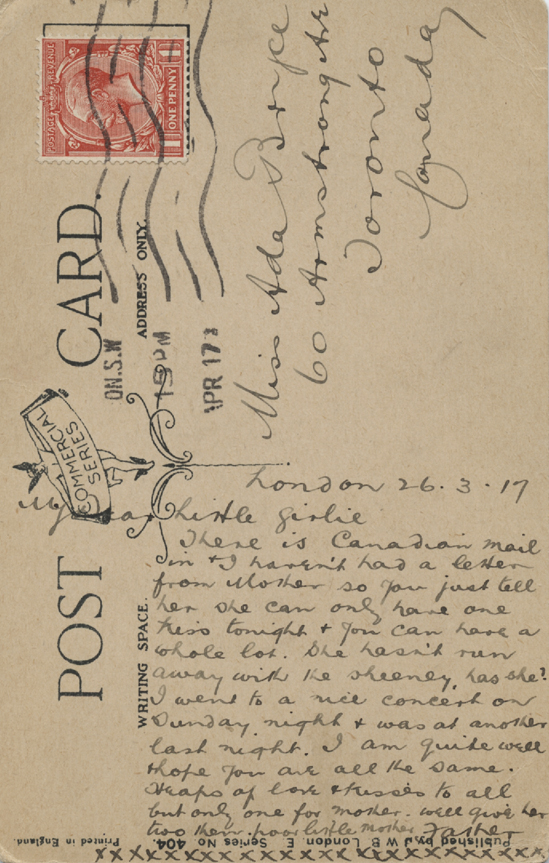 POST CARD.
COMMERCIAL
SERIES
WRITING SPACE.
ADDRESS ONLY.
POSTAGE REVENUE
ONE PENNY
ON. S.W
15 PM
APR 17
Miss Ada Bryce
60 Armstrong Ave
Toronto
Canada
London 26.3.17
My dear little girlie
There is Canadian mail
in & I haven't had a letter
from Mother so you just tell
her she can only have one
kiss tonight & you can have a
whole lot. She hasn't run
away with the sheeney, has she?
I went to a nice concert on
Sunday night & was at another
last night. I am quite well
& hope you are all the same.
Heaps of love & kisses to all
but only one for mother. well give her
two then. poor little mother. Father
XXXXXXXXXXXXXXXXXXXXXXXX
Published by J W B London. E. Series No 404.
Printed in England.